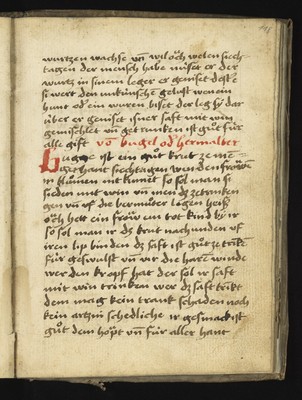 wurtzen wachse vn̄ wil och welen siech
tagen der mensch habe nüset er der
wurtz in sinem leger er geniset dest e
si wert den unkünsche gelust wen ein
hunt od' ein wuren biset der leg sy dar
über er geniset is ir saft mit win
gemischlet vn̄ getrunken ist gůt für
alle gift vō bugel od' hermalter
Bugge ist ein gůt krut ze me
ger hant siechtagen wen den frowen
ir blůmen nit kumet so sol man si
sieden mit win vn̄ inen dz ze trinken
gen vn̄ vf die bermůter legen heiß
och hett ein frow ein tot kind by ir
so sol man ir dz krut nach unden vf
iren lip binden dz saft ist gůt ze trīkē
für geswulst vn̄ vir die harē winde
wer den kropf hat der sol ir saft
mit win trinken wer dz saft trīkt
dem mag kein trank schaden noch
kein artzni schedliche ir gesmack ist
gůt dem hopt vn̄ für aller hant